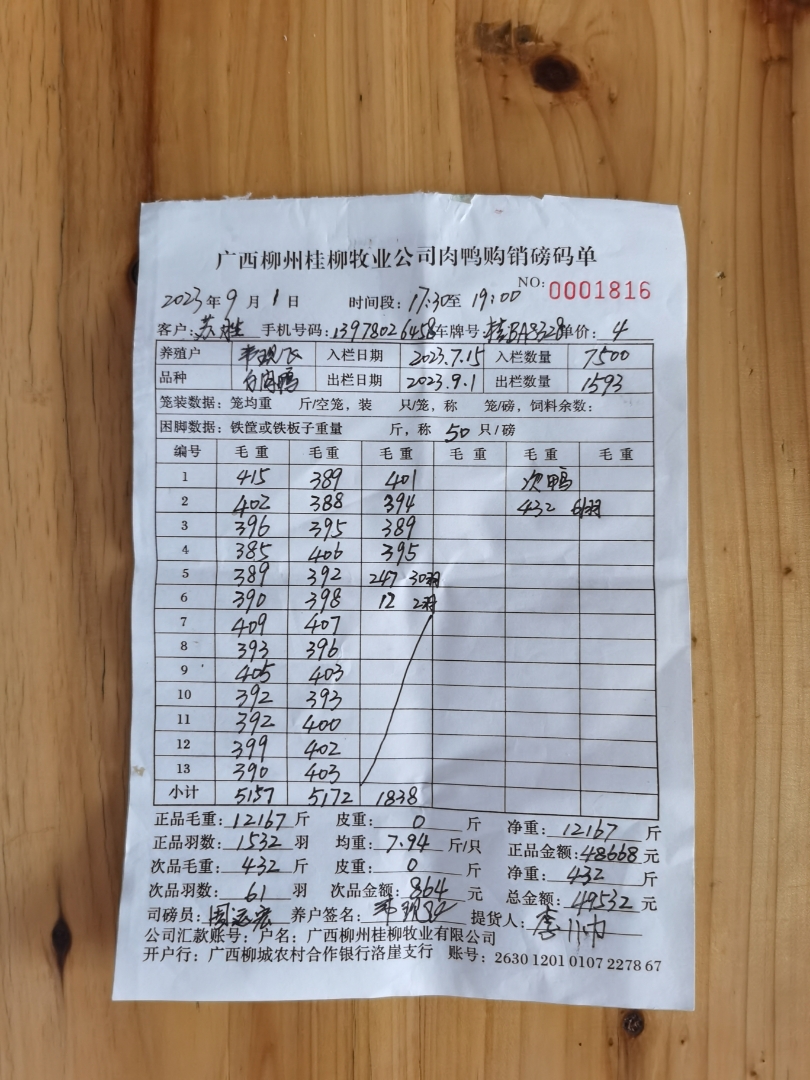 广西柳州桂柳牧业公司肉鸭购销磅码单
NO: 0001816
2023年9月1日 时间段: 17:30至 19:00
客户: 苏胜 手机号码: 13978026458 车牌号: 桂BA8328 单价: 4
养殖户 入栏日期 2023.7.15 入栏数量 7500
品种 出栏日期 2023.9.1 出栏数量 1593
笼装数据: 笼均重 斤/空笼, 装 只/笼, 称 笼/磅, 饲料余数:
困脚数据: 铁筐或铁板子重量 斤, 称 50 只/磅
编号 毛重 毛重 毛重 毛重 毛重 毛重
1 415 389 401 次鸭
2 402 388 394 432 61羽
3 396 395 389
4 385 406 395
5 389 392 247 30羽
6 390 398 12 2羽
7 409 407
8 393 396
9 405 403
10 392 393
11 392 400
12 399 402
13 390 403
小计 5157 5172 1838
正品毛重: 12167 斤 皮重: 0 斤 净重: 12167 斤
正品羽数: 1532 羽 均重: 7.94 斤/只 正品金额: 48668 元
次品毛重: 432 斤 皮重: 0 斤 净重: 432 斤
次品羽数: 61 羽 次品金额: 864 元 总金额: 49532 元
司磅员: 养户签名: 提货人:
公司汇款账号: 户名: 广西柳州桂柳牧业有限公司
开户行: 广西柳城农村合作银行洛崖支行 账号: 2630 1201 0107 2278 67